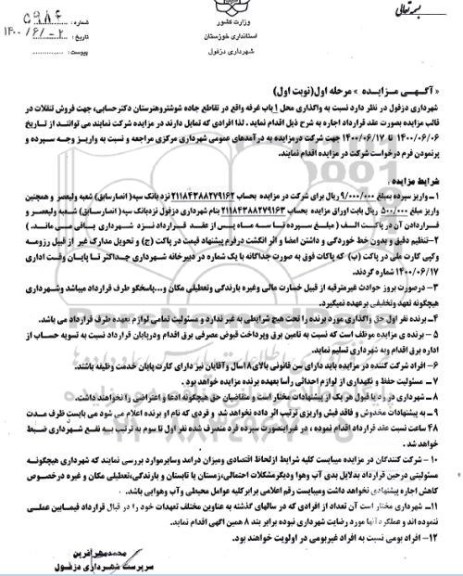 بسمه تعالی
شماره: ۵۹۸۶
وزارت کشور
تاریخ: ۱۴۰۰/۶/۰۲
استانداری خوزستان
پیوست:
شهرداری دزفول
« آگهی مزایده » مرحله اول(نوبت اول)
شهرداری دزفول در نظر دارد نسبت به واگذاری محل ۱باب غرفه واقع در تقاطع جاده شوشتروهنرستان دکترحسابی، جهت فروش تنقلات در
قالب مزایده بصورت عقد قرارداد اجاره به شرح ذیل اقدام نماید . لذا افرادی که تمایل دارند در مزایده شرکت نمایند می توانند از تاریخ
۱۴۰۰/۰۶/۰۶ تا ۱۴۰۰/۰۶/۱۷ جهت شرکت درمزایده به درآمدهای عمومی شهرداری مرکزی مراجعه و نسبت به واریز وجه سپرده و
پرنمودن فرم درخواست شرکت در مزایده اقدام نمایند.
شرایط مزایده :
۱ – واریز سپرده بمبلغ ۹/۰۰۰/۰۰۰ ریال برای شرکت در مزایده بحساب ۲۱۱۸۴۳۸۸۲۷۹۱۶۳ نزد بانک سپه( انصارسابق) شعبه ولیعصر و همچنین
واریز مبلغ ۵۰۰/۰۰۰ ریال بابت اوراق مزایده بحساب ۲۱۱۸۴۳۸۸۲۷۹۱۶۳ بنام شهرداری دزفول نزدبانک سپه( انصارسابق) شعبه ولیعصر و
قراردادن آن در پاکت الف ( مبلغ سپرده تا سه ماه پس از عقد قرارداد نزد شهرداری باقی می ماند. )
۲–تنظیم دقیق و بدون خط خوردگی و داشتن امضا و اثر انگشت درفرم پیشنهاد قیمت در پاکت (ج) و تحویل مدارک غیر از قبیل رزومه
وکپی کارت ملی در پاکت (ب) که پاکات فوق به صورت جداگانه با یک شماره در دبیرخانه شهرداری حداکثر تا پایان وقت اداری
۱۴۰۰/۰۶/۱۷ شماره گردند.
۳– درصورت بروز حوادث غیرمترقبه از قبیل خسارت مالی وغیره بارندگی وتعطیلی مکان و...پاسخگو طرف قرارداد میباشد وشهرداری
هیچگونه تعهد وتخلیفی برعهده نمیگیرد.
۴– برنده نفر اول حق واگذاری مورد برنده را تحت هیچ شرایطی به غیر ندارد و مسئولیت تمامی لوازم بعهده طرف قرارداد می باشد.
۵– برنده ی مزایده موظف است که نسبت به تامین برق وپرداخت قبوض مصرفی برق اقدام ودرپایان قرارداد نسبت به تسویه حساب از
اداره برق اقدام وبه شهرداری تسلیم نماید.
۶– افراد شرکت کننده در مزایده باید دارای سن قانونی بالای۱۸سال و آقایان نیز دارای کارت پایان خدمت وظیفه باشند.
۷ – مسئولیت حفظ و نگهداری از لوازم احداثی رأسا بعهده برنده مزایده خواهد بود .
۸ – شهرداری در رد یا قبول هر یک از پیشنهادات مختار است و متقاضیان حق هیچگونه ادعا و اعتراضی را نخواهند داشت.
۹ – به پیشنهادات مخدوش و فاقد فیش واریزی ترتیب اثر داده نخواهد شد و فردی که نام او برنده اعلام می شود می بایست ظرف مدت
۴۸ ساعت نسبت عقد قرارداد اقدام نموده ، در غیراینصورت سپرده فرد منصرف شده نفر اول تا سوم به ترتیب به نفع شهرداری ضبط
خواهد شد .
۱۰ – شرکت کنندگان در مزایده میبایست کلیه شرایط ازلحاظ اقتصادی ومیزان درآمد وسایرموارد بررسی نمایند که شهرداری هیچگونه
مسئولیتی درحین قرارداد بدلایل بدی آب وهوا ودیگرمشکلات احتمالی،زمستان یا تابستان و بارندگی،تعطیلی مکان و غیره درخصوص
کاهش اجاره پیشنهادی نخواهد داشت ومیبایست رقم اعلامی برابرکلیه عوامل محیطی وآب وهوایی باشد.
۱۱– شهرداری مختار است آن تعداد از افرادی که در سالهای گذشته به عناوین مختلف تعهدات خود را در قبال قرارداد فیمابین عملی
ننموده اند و عملکرد آنها مورد رضایت شهرداری نبوده برابر بند ۸ همین آگهی اقدام نماید.
۱۲– افراد بومی نسبت به افراد غیربومی در اولویت خواهند بود.
محمدمهر آفرین
سرپرست شهرداری دزفول